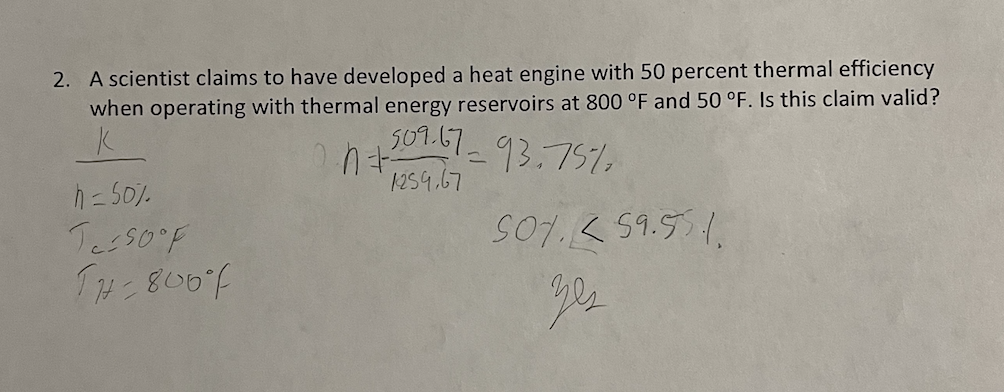 2. A scientist claims to have developed a heat engine with 50 percent thermal efficiency
when operating with thermal energy reservoirs at 800 °F and 50 °F. Is this claim valid?
K
n = 50%
Tc = 50°F
TH = 800°F
n + 509.67/1259.67 = 93.75%
50% < 59.55%
yes